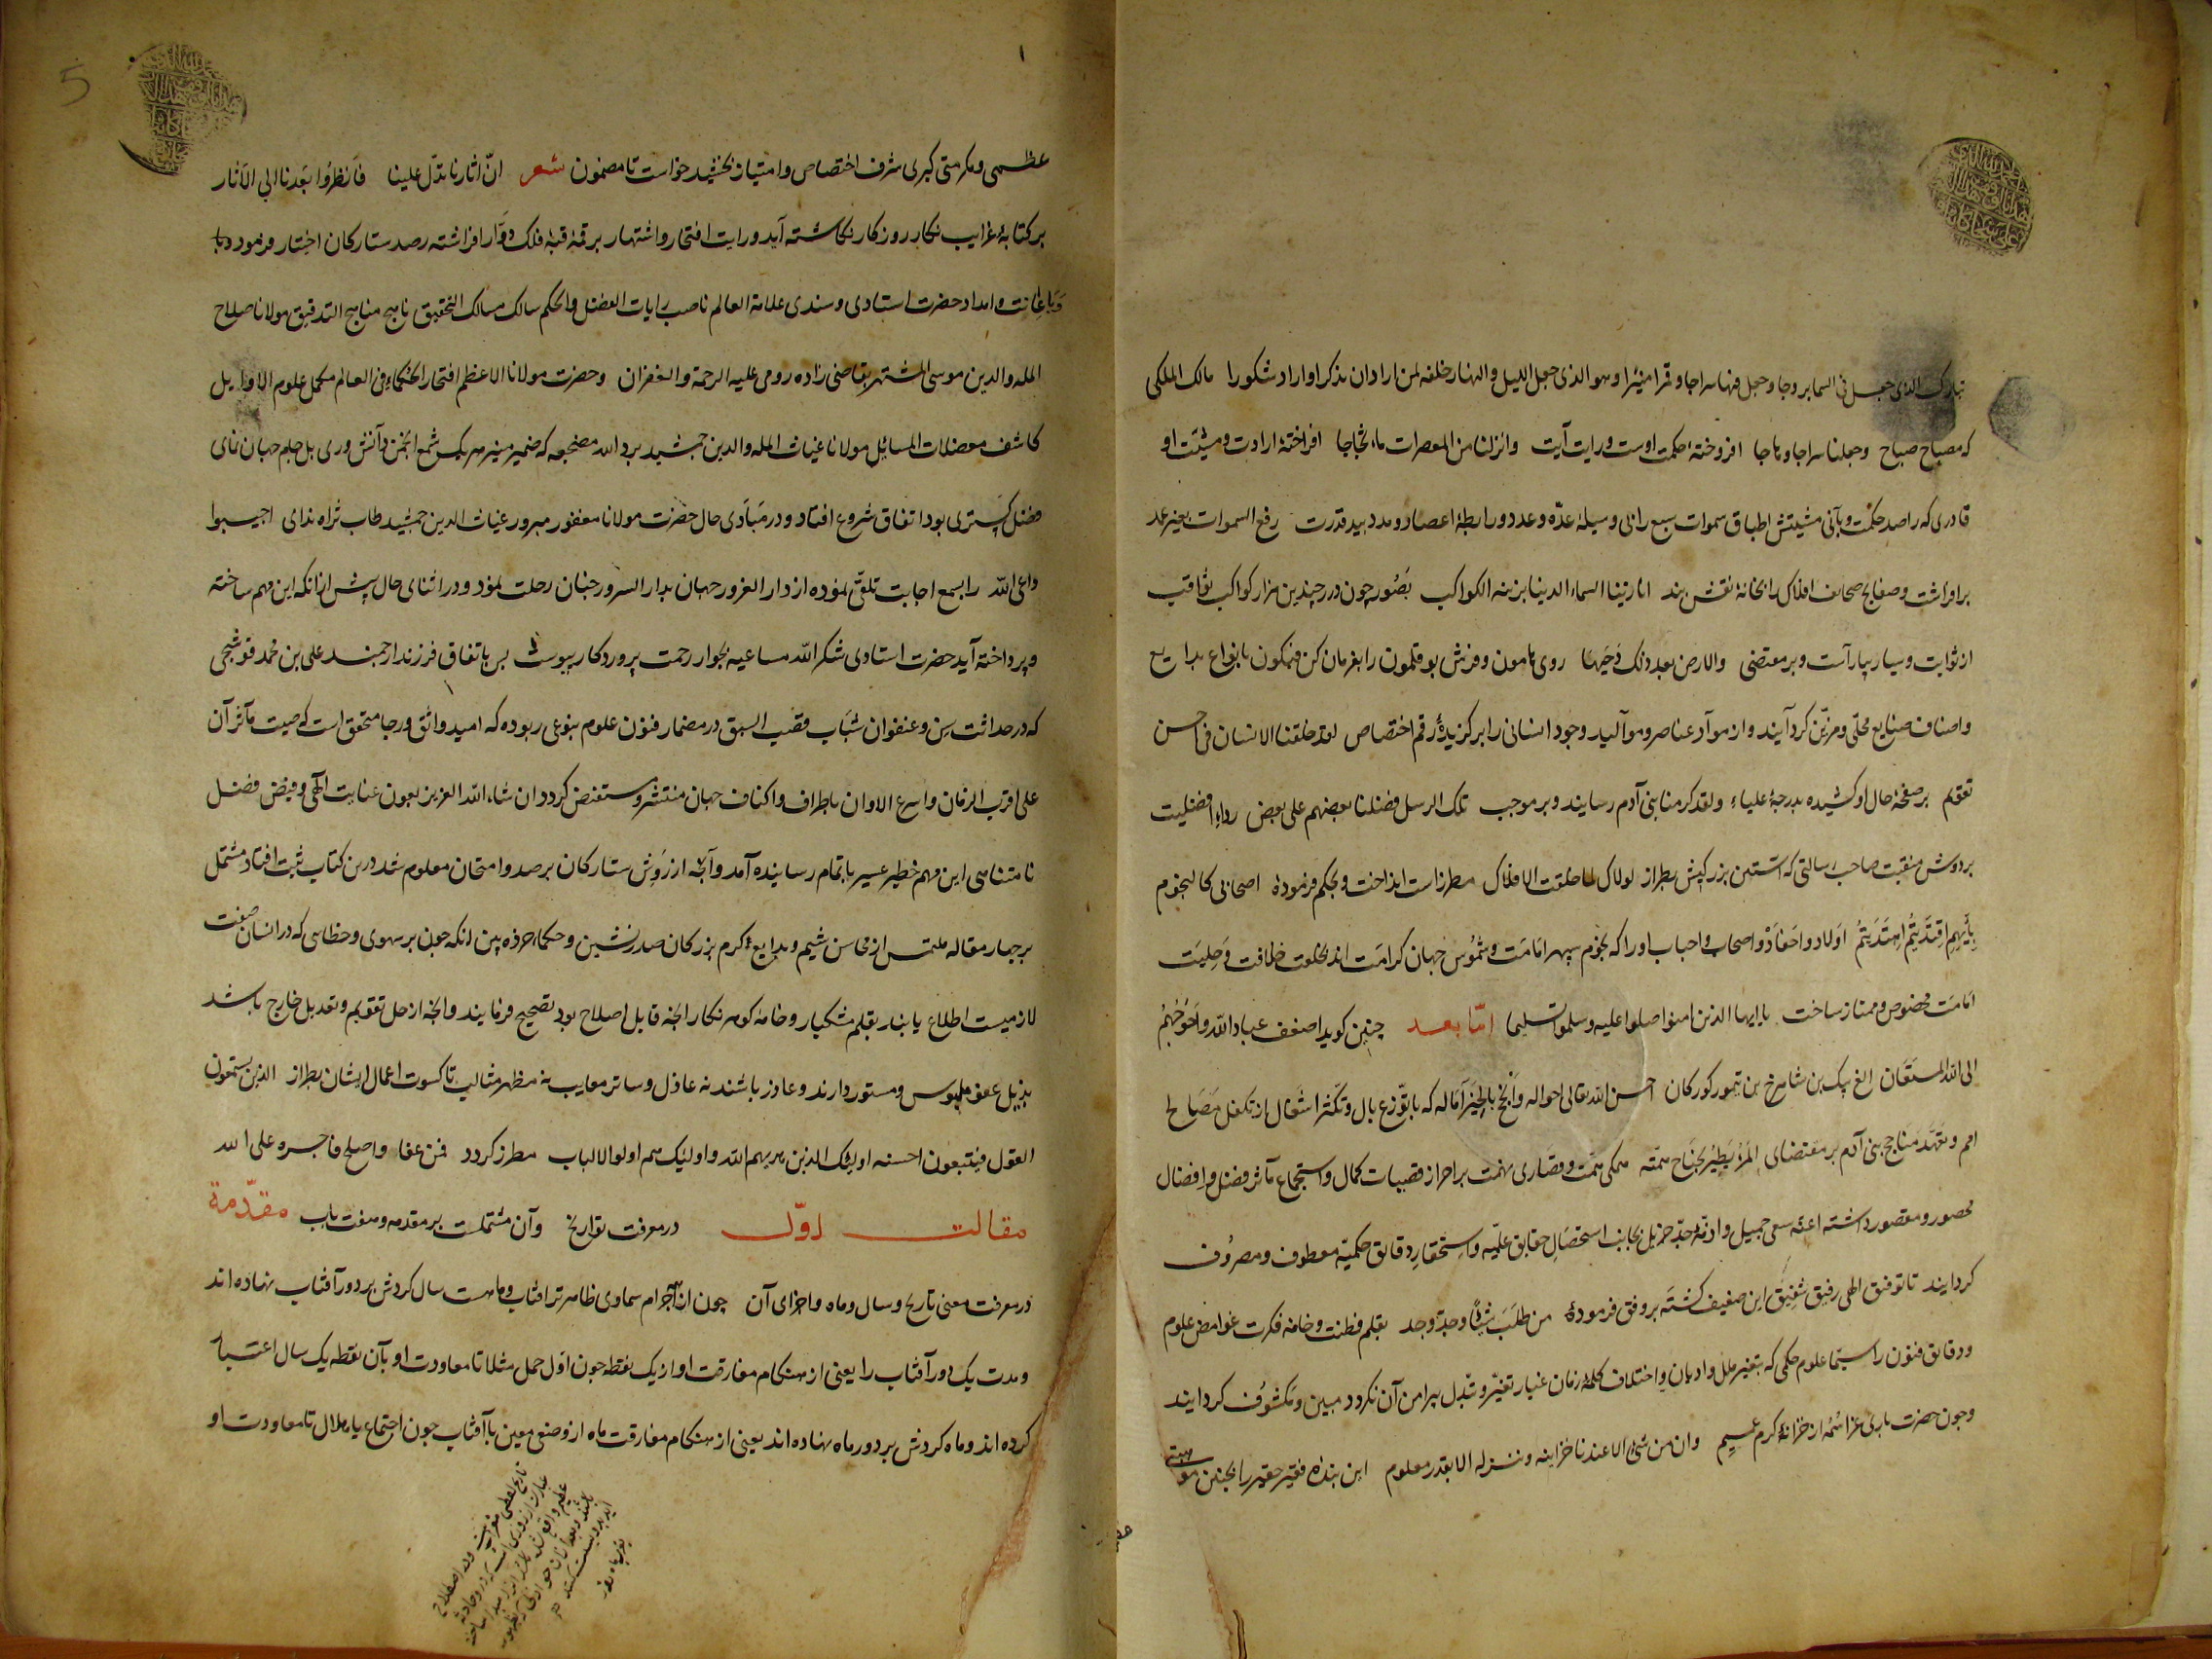 تبارک الذی جعل فی السما بروجا وجعل فیها سراجا وقمرا منیرا وهو الذی جعل اللیل والنهار خلفه لمن اراد ان یذکر او اراد شکورا مالک الملکی
که مصباح صباح وجعلنا سراجا وهاجا افروخته حکمت اوست ورایت آیت وانزلنا من المعصرات ماء ثجاجا افراختهٔ ارادت ومشیّت او
قادری که راصد حکمت وبانی مشیتش اطباق سموات سبع را بی وسیلهٔ عدّه وعدد ورابطهٔ اعضاد ومدد بید قدرت رفع السموات بغیر عمد
برافراشت وصفایح صحایف افلاک را بخامهٔ نقش بند انا زینا السماء الدنیا بزینه الکواکب بصُوَر چون درر چندین هزار کواکب ثواقب
از ثوابت وسیار بیاراست وبر مقتضی والارض بعد ذلک دَحَیها روی هامون وفرش بوقلمون را بفرمان کن فیکون بانواع بدایع
واصناف صنایع محلّی ومزیّن گردانید واز موآد عناصر وموآلید وجود انسانی را برگزیدهٔ رقم اختصاص لقد خلقنا الانسان فی احسن
تقویم بر صفحهٔ حال او کشیده بدرجهٔ علیاء ولقد کرمنا بنی آدم رسانید وبر موجب تلک الرسل فضلنا بعضهم علی بعض رداء افضلیت
بر دوش منقبت صاحب رسالتی که آستین بزرگیش بطراز لولاک لما خلقت الافلاک مطرزاست انداخت وبحکم فرمودهٔ اصحابی کالنجوم
بِأیِّهِم اقتَدَیتُم اهتَدَیتُم اَولاد واحفاد واصحاب واحباب او را که نجوم سپهر امامت وشموس جهان کرامت اند بخلعت خلافت وحلیت
امامت مخصوص وممتاز ساخت یا ایها الذین امنوا صلوا علیه وسلموا تسلیما امّا بعد چنین گوید اضعف عباد الله واَحوَجُهُم
الی الله المستعَان الغ بیک بن شاهرخ بن تیمور کورکان احسن الله تعالی احواله وانجح بالخیر آماله که با توزّع بال وتکثّر اشغال از تکفل مصَالح
امم وتعهّد مَناجح بنی آدم بر مقتضای المَرءُ یَطیرُ بجَناح همّته همگی همّت وقصاری نهمت بر احراز قصبات کمال واستجماع مآثر فضل وافضال
محصور ومقصور داشته اعنّه سعی جمیل وازمّه جدّ جزیل بجانب استحصَالِ حقایق علمیّه واستحقارِ دقایق حکمیّه معطوف ومصرُوف
گردانید تا توفیق الهی رفیق شفیق این ضعیف گشته بر وفق فرمودهٔ من طلَبَ شیئًا وجدّ وجد بقلم فطنت وخامه فکرت غوامض علوم
ودقایق فنون را سیّما علوم حکمی که بتغیر ملل وادیان واختلاف کلمهٔ زمان غبار تغیّر وتبدّل پیرامن آن نگردد مبین ومکشُوف گردانید
وچون حضرت باری عز اسمُه از خزانهٔ کرم عمیم وان من شئ الا عندنا خزاینه وننزله الا بقدر معلوم این بنده فقیر حقیر را بچنین موهبتی
۱
5
عظمی ومکرمتی کبری شرف اختصاص وامتیاز بخشید خواست تا مضمون شعر انّ اثارنا تدُلّ علینا فَانظرُوا بَعدنا الی الآثار
بر کتابهٔ غرایب نگار روزگار نگاشته آید ورایت افتخار واشتهار بر قمهٔ قبهٔ فلک دوّار افراشته رصد ستارگان اختیار فرمود
وباعانت وامداد حضرت استادی وسندی علامة العالم ناصب رایات الفضل والحکم سالک مسالک التحقیق ناهج مناهج التدقیق مولانا صلاح
المله والدین موسی المشتهر بقاضی زاده رومی علیه الرحمة والغفران وحضرت مولانا الاعظم افتخار الحکماء فی العالم مکمل علوم الاوایل
کاشف معضلات المسائل مولانا غیاث المله والدین جمشید برد الله مضجعه که ضمیر منیر هر یک شمع انجمن دانش وری بل جام جهان نمای
فضل گستری بود اتفاق شروع افتاد ودر مبادی حال حضرت مولانا مغفور مبرور غیاث الدین جمشید طاب ثراه ندای اجیبوا
داعی الله را بسمع اجابت تلقّی نموده از دار الغرور جهان بدار السرور جنان رحلت نمود ودر اثنای حال پیش از انکه این مهم ساخته
وپرداخته آید حضرت استادی شکر الله مساعیه بجوار رحمت پروردگار پیوست پس باتفاق فرزند ارجمند علی بن محمد قوشجی
که در حداثت سِن وعنفوان شبَاب قصَب السبق در مضمار فنون علوم بنوعی ربوده که امید واثق ورجا متحقق است که صیت مآثر آن
علی اقرب الزمان واسرع الاوان باطراف واکناف جهان منتشر ومستفیض گردد ان شاء الله العزیز بعون عنایت الهی وفیض فضل
نامتناهی این مهم خطیر عسیر باتمام رسانیده آمد وآنچه از روش ستارگان برصد وامتحان معلوم شد درین کتاب ثبت افتاد مشتمل
بر چهار مقاله ملتمس از محاسن شیم وبدایع کرم بزرگان صدرنشین وحکماء خرده بین انکه چون بر سهوی وخطایی که در انسان صفت
لازمیست اطلاع یابند بقلم مشکبار وخامهٔ گوهر نگار انچه قابل اصلاح بود تصحیح فرمایند وانچه از حل تقویم وتعدیل خارج باشد
بذیل عفو ملبوس ومستور دارند وعاذر باشند نه عاذل وساتر معایب نه مظهر مثالب تا کسوت اعمال ایشان بطراز الذین یستمعون
القول فیتبعون احسنه اولئک الذین هدیهم الله واولئک هم اولوا الالباب مطرز گردد فمن عفا واصلح فاجره علی الله
مقالت اوّل در معرفت تواریخ وآن مشتملست بر مقدمه وهفت باب مقدّمة
در معرفت معنی تاریخ وسال وماه واجزای آن چون از اجرام سماوی ظاهرتر آفتاب وماهست سال گردش بر دور آفتاب نهاده اند
ومدت یک دور آفتاب را یعنی از هنگام مفارقت او از یک نقطه چون اوّل حمل مثلا تا معاودت او بآن نقطه یک سال اعتبار
کرده اند وماه گردش بر دور ماه نهاده اند یعنی از هنگام مفارقت ماه از وضعی معین با آفتاب چون اجتماع یا هلال تا معاودت او